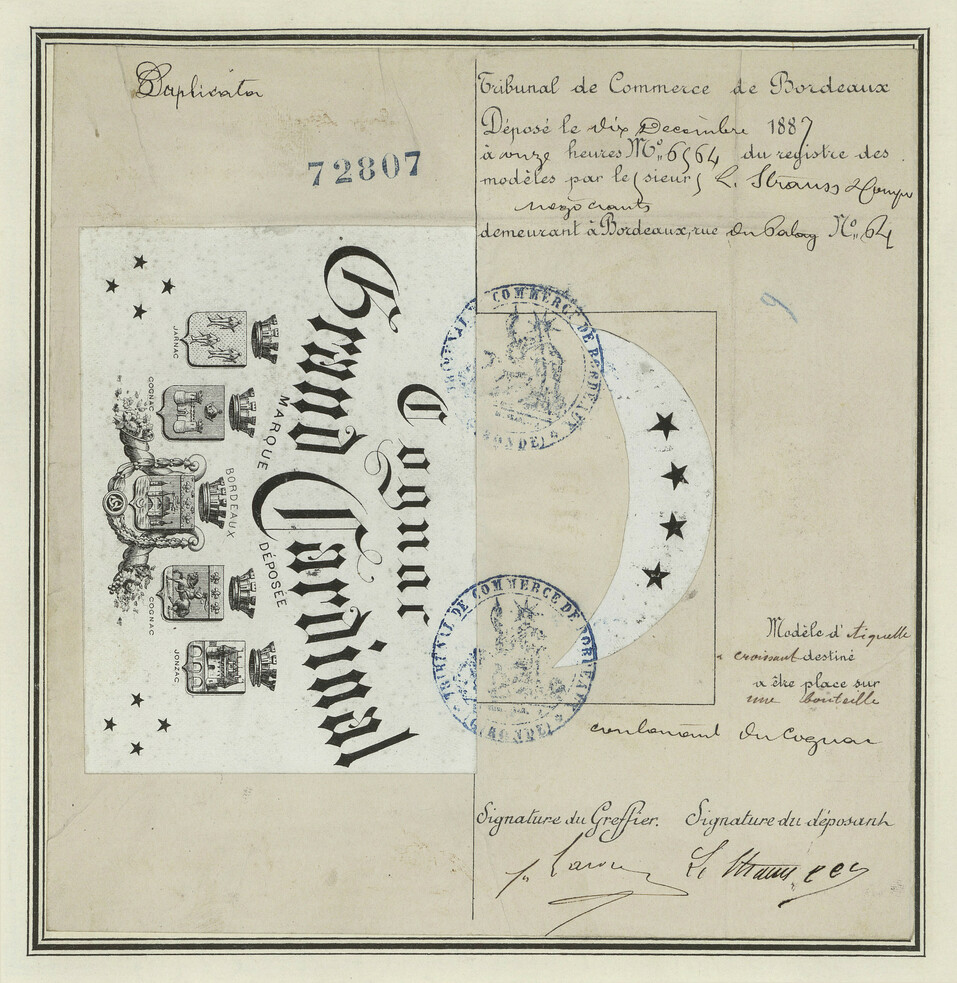 Duplicata
72807
Tribunal de Commerce de Bordeaux
Déposé le dix Decembre 1887
à onze heures Mo. 6564 du registre des
modèles par le (sieur) L. Strauss & Comp
negociants
demeurant à Bordeaux, rue du No. 64
Cognac
Grand Cardinal
MARQUE DÉPOSÉE
JARNAC
COGNAC
BORDEAUX
COGNAC
JONZAC
TRIBUNAL DE COMMERCE DE BORDEAUX
(GIRONDE)
TRIBUNAL DE COMMERCE DE BORDEAUX
(GIRONDE)
Modèle d'étiquette
croissant destiné
a être place sur
une bouteille
contenant du Cognac
Signature du Greffier. Signature du déposant
L. Strauss